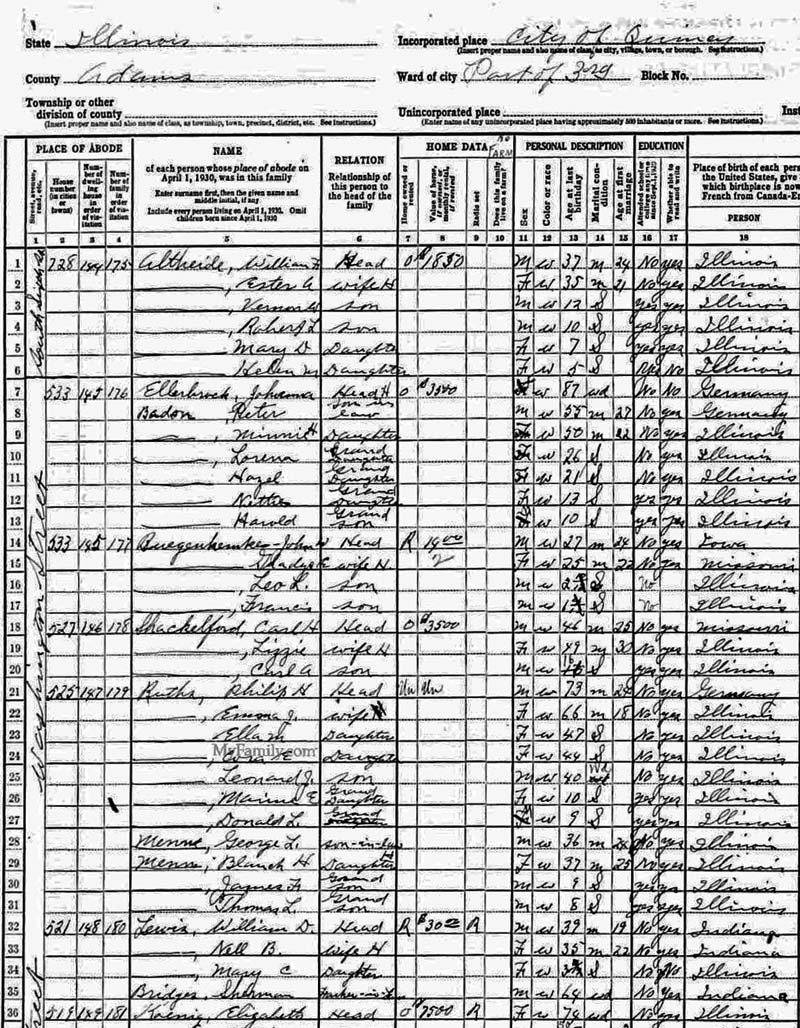 State Illinois
Incorporated place City of Quincy
(Insert proper name and also name of class, as city, village, town, or borough. See instructions.)
County Adams
Ward of city Part of 3rd Block No.
Township or other
division of county
(Insert proper name and also name of class, as township, town, precinct, district, etc. See instructions.)
Unincorporated place
(Enter name of any unincorporated place having approximately 500 inhabitants or more. See instructions.)
Inst
PLACE OF ABODE NAME RELATION HOME DATA PERSONAL DESCRIPTION EDUCATION
Street, avenue, road, etc.
House number (in cities or towns)
Number of dwelling house in order of visitation
Number of family in order of visitation
of each person whose place of abode on
April 1, 1930, was in this family
Enter surname first, then the given name and
middle initial, if any
Include every person living on April 1, 1930. Omit
children born since April 1, 1930
Relationship of
this person to
the head of the
family
Home owned or rented
Value of home, if owned, or monthly rental, if rented
Radio set
Does this family live on a farm?
Sex
Color or race
Age at last birthday
Marital condition
Age at first marriage
Attended school or college any time since Sept. 1, 1929
Whether able to read and write
Place of birth of each pers
the United States, give
which birthplace is now
French from Canada-E
PERSON
1 2 3 4 5 6 7 8 9 10 11 12 13 14 15 16 17 18
South Sixth St
Washington Street
1 728 144 175 Altheide, William F Head O $1850 M W 37 M 24 No yes Illinois
2 , Ester A wife H F W 35 M 21 No yes Illinois
3 , Vernon W son M W 12 S yes yes Illinois
4 , Robert L son M W 10 S yes yes Illinois
5 , Mary D Daughter F W 7 S yes yes Illinois
6 , Helen M Daughter F W 5 S yes No Illinois
7 533 145 176 Ellerbrock, Johanna Head H O $3500 W 87 wd No No Germany
8 Badon Peter Son in law M W 55 M 27 No yes Germany
9 , Minnie H Daughter W 50 M 22 No yes Illinois
10 , Lorena Grand Daughter W 26 S No yes Illinois
11 , Hazel Grand Daughter W 21 S No yes Illinois
12 , Grand Daughter W 13 S yes yes Illinois
13 , Harold Grand son W 10 S yes yes Illinois
14 533 145 177 John W Head R 14 00 M W 27 M 24 No yes Iowa
15 , Gladys E wife H F W 25 M 22 No yes Missouri
16 , Leo L. son M W S No Illinois
17 , Francis son M W S No Illinois
18 527 146 178 Shackelford, Carl H Head O $3500 M W 46 M 25 No yes Missouri
19 , Lizzie wife H F W 49 M 30 No yes Illinois
20 , Carl A son M W 16 S yes yes Illinois
21 525 147 179 Ruths, Philip H Head Un Un M W 73 M 24 No yes Germany
22 , Emma J. wife F W 66 M 18 No yes Illinois
23 , Ella M Daughter F W 47 S No yes Illinois
24 , E Daughter F W 44 S No yes Illinois
25 , Leonard J. son M W 40 Wd No yes Illinois
26 , E Grand Daughter F W 10 S yes yes Illinois
27 , Donald L. Grand W 9 S yes yes Illinois
28 Menne, George L. son-in-law M W 36 M 24 No yes Illinois
29 Menne, Blanch H Daughter F W 37 M 25 No yes Illinois
30 , James F. Grand son M W 9 S yes yes Illinois
31 , Thomas L. Grand son M W 8 S yes yes Illinois
32 521 148 180 Lewis, William D. Head R $30 R M W 39 M 19 No yes Indiana
33 , Nell B. wife H F W 35 M No yes Indiana
34 , Mary C Daughter F W S No No Illinois
35 Bridges, Sherman Father-in-L M W 64 wd No yes Indiana
36 519 149 181 Koenig, Elizabeth Head O 7500 R F W 74 wd No yes Illinois
MyFamily.com